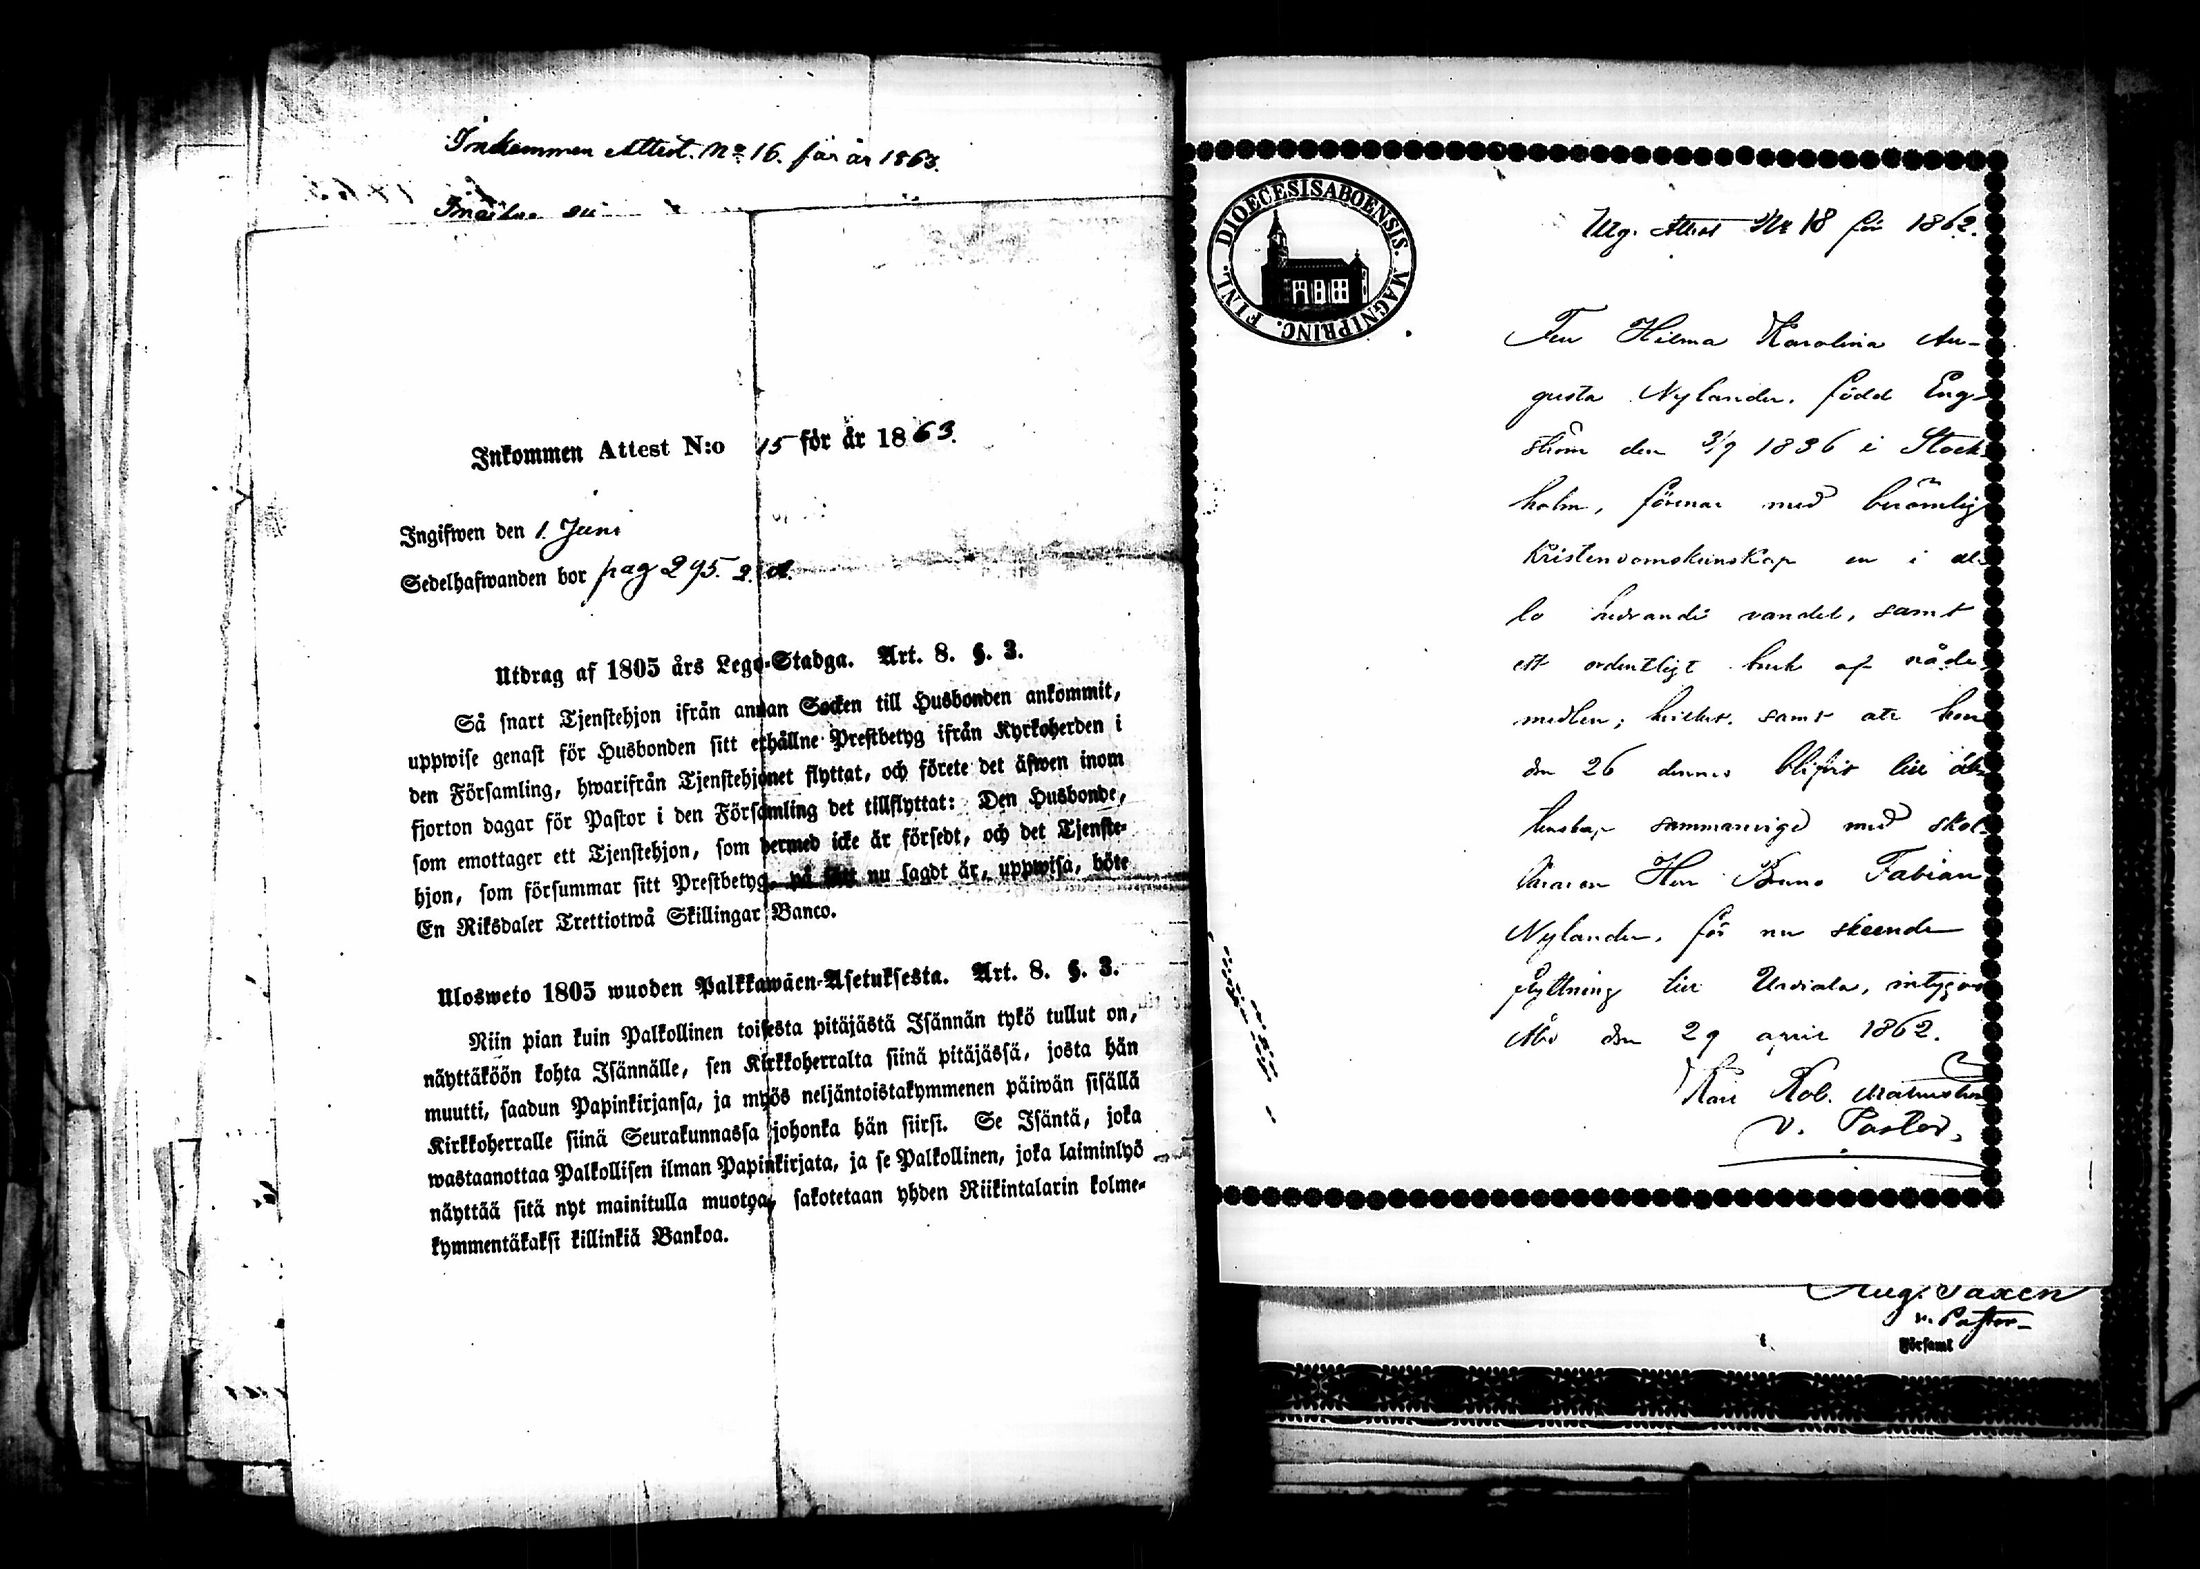 Inkommen Attest. No 16. för år 1863.
Inkommen Attest N:o 15 för år 1863.
Ingifwen den 1. Juni
Sedelhafwanden bor pag 295.
Utdrag af 1805 års Lego-Stadga. Art. 8. §. 3.
Så snart Tjenstehjon ifrån annan Socken till Husbonden ankommit,
uppwise genast för Husbonden sitt erhållne Prestbetyg ifrån Kyrkoherden i
den Församling, hwarifrån Tjenstehjonet flyttat, och förete det äfwen inom
fjorton dagar för Pastor i den Församling det tillflyttat: Den Husbonde,
som emottager ett Tjenstehjon, som dermed icke är försedt, och det Tjenste-
hjon, som försummar sitt Prestbetyg, på sätt nu sagdt är, uppwisa, böte
En Riksdaler Trettiotwå Skillingar Banco.
Ulosweto 1805 wuoden Palkkawäen-Asetuksesta. Art. 8. §. 3.
Niin pian kuin Palkollinen toisesta pitäjästä Isännän tykö tullut on,
näyttäköön kohta Isännälle, sen Kirkkoherralta siinä pitäjässä, josta hän
muutti, saadun Papinkirjansa, ja myös neljäntoistakymmenen päiwän sisällä
Kirkkoherralle siinä Seurakunnassa johonka hän siirsi. Se Isäntä, joka
wastaanottaa Palkollisen ilman Papinkirjata, ja se Palkollinen, joka laiminlyö
näyttää sitä nyt mainitulla muotoa, sakotetaan yhden Riikintalarin kolme-
kymmentäkaksi killinkiä Bankoa.
DIOECESIS ABOENSIS. MAGNI PRINC. FINL.
Utg. Attest Nr 18 för 1862.
Fru Hilma Karolina Au-
gusta Nylander, född Eng-
ström den 3/9 1836 i Stock-
holm, förenar med berömlig
kristendomskunskap en i al-
lo hedrande vandel, samt
ett ordentligt bruk af nåde-
medlen; samt att hon
den 26 dennes blifvit till äk-
tenskap sammanvigd med skol-
läraren Herr Bruno Fabian
Nylander, för nu skeende
flyttning till Urdiala, intygar
Åbo den 29 april 1862.
Karl Rob. Malmström
v. Pastor.
Aug. Saxen
v. Pastor
Församl